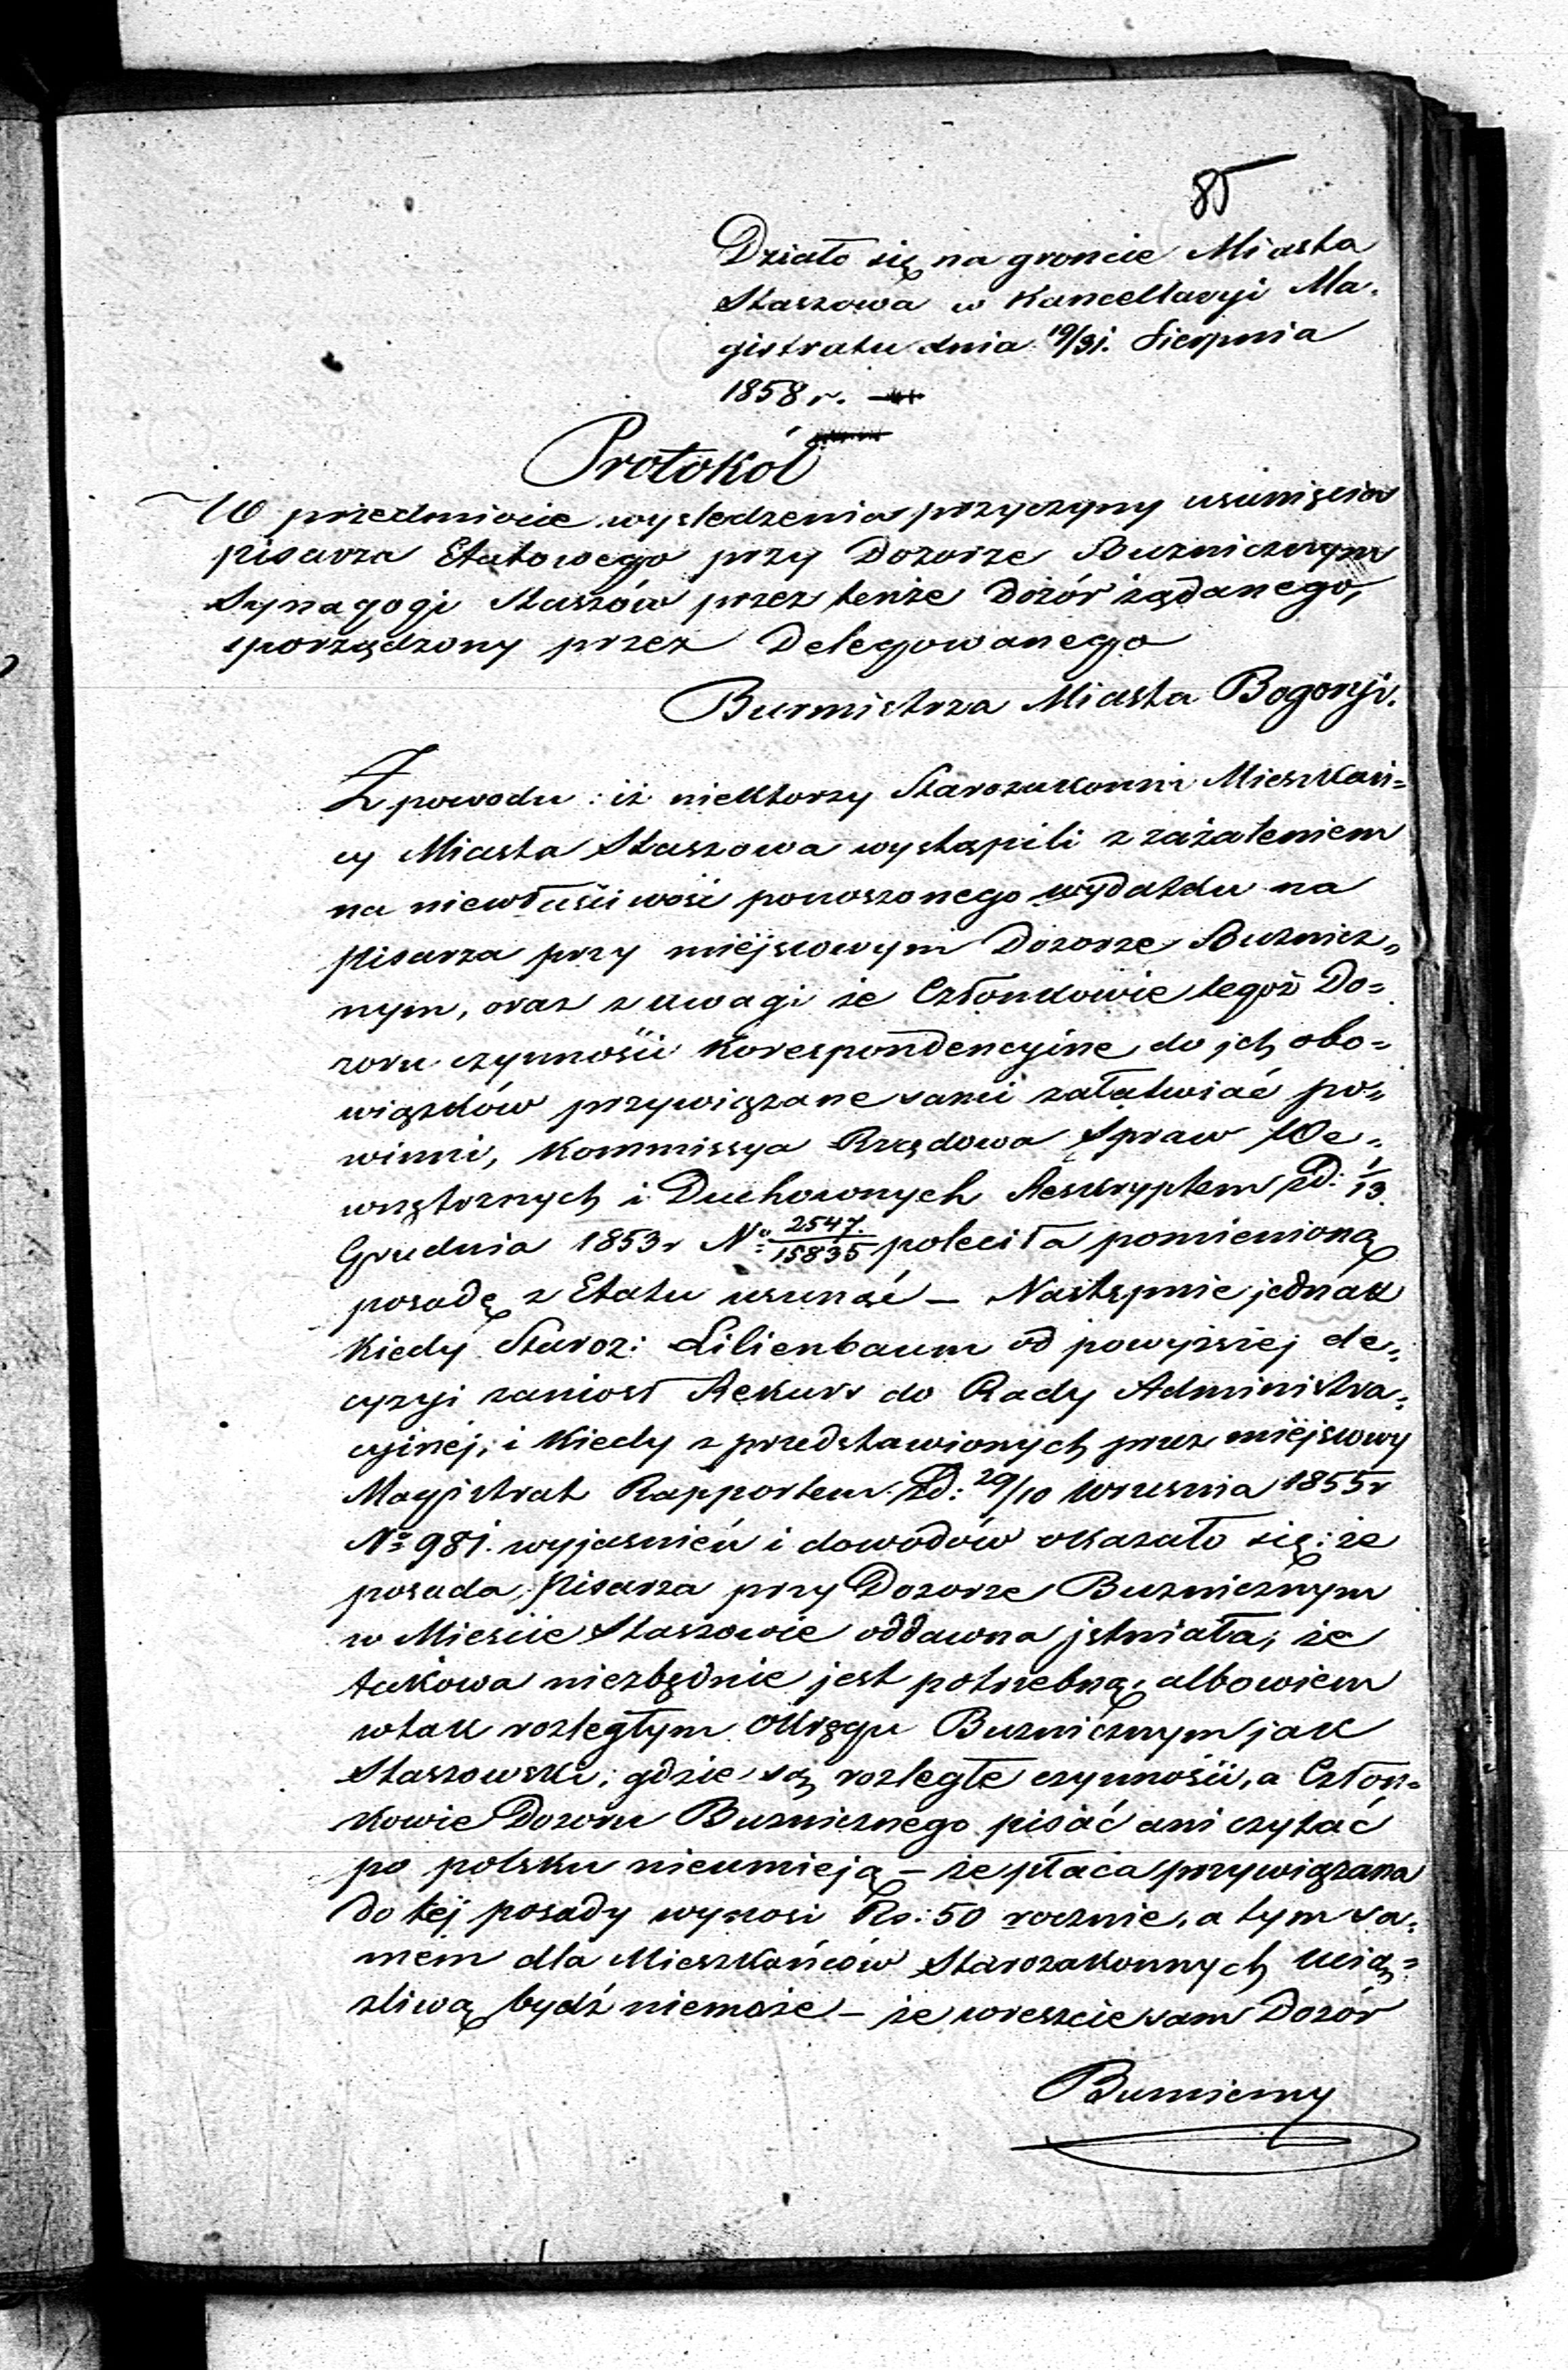 85
Działo się na groncie Miasta
Staszowa w Kancellaryi Ma-
gistratu dnia 19/31. Sierpnia
1858 r.
Protokół
W przedmiocie wysledzenia przyczyny usunięcia
pisarza Etatowego przy Dozorze Buznicznym
Synagogi Staszów przez tenże Dozór żądanego,
sporządzony przez Delegowanego
Burmistrza Miasta Bogoryi.
Z powodu: iż niektorzy Starozakonni Mieszkań=
cy Miasta Staszowa wystąpili z zażaleniem
na niewłaściwość ponoszonego wydatku na
Pisarza przy miejscowym Dozorze Buznicz=
nym, oraz z uwagi że Członkowie tegoż Do=
zoru czynności Korespondencyine do jch obo=
wiązków przywiązane sami załatwiać po=
winni, Kommissya Rządowa Spraw We=
wnętrznych i Duchownych Reskryptem z D: 1/13
Grudnia 1853 r No 2547./15835 poleciła pomienioną
posadę z Etatu usunąć – Następnie jednak
Kiedy Staroz: Lilienbaum od powyższej de=
cyzyi zaniosł Rekurs do Rady Administra=
cyinej, i Kiedy z przedstawionych przez miejscowy
Magistrat Rapportem z D: 29/10 Wrzesnia 1855 r
No 981. wyjasnień i dowodów okazało się: że
posada Pisarza przy Dozorze Buznicznym
w Mieście Staszowie oddawna jstniała, że
takowa niezbędnie jest potrzebną, albowiem
w tak rozległym Okręgu Buznicznym jak
Staszowski, gdzie są rozległe czynności, a Człon=
kowie Dozoru Buznicznego pisać ani czytać
po polsku nieumieją – że płaca przywiązana
do tej posady wynosi Rs: 50 rocznie, a tym sa=
mem dla Mieszkańców Starozakonnych ucią=
zliwą bydź niemoże – że wreszcie sam Dozór
Buzniczny